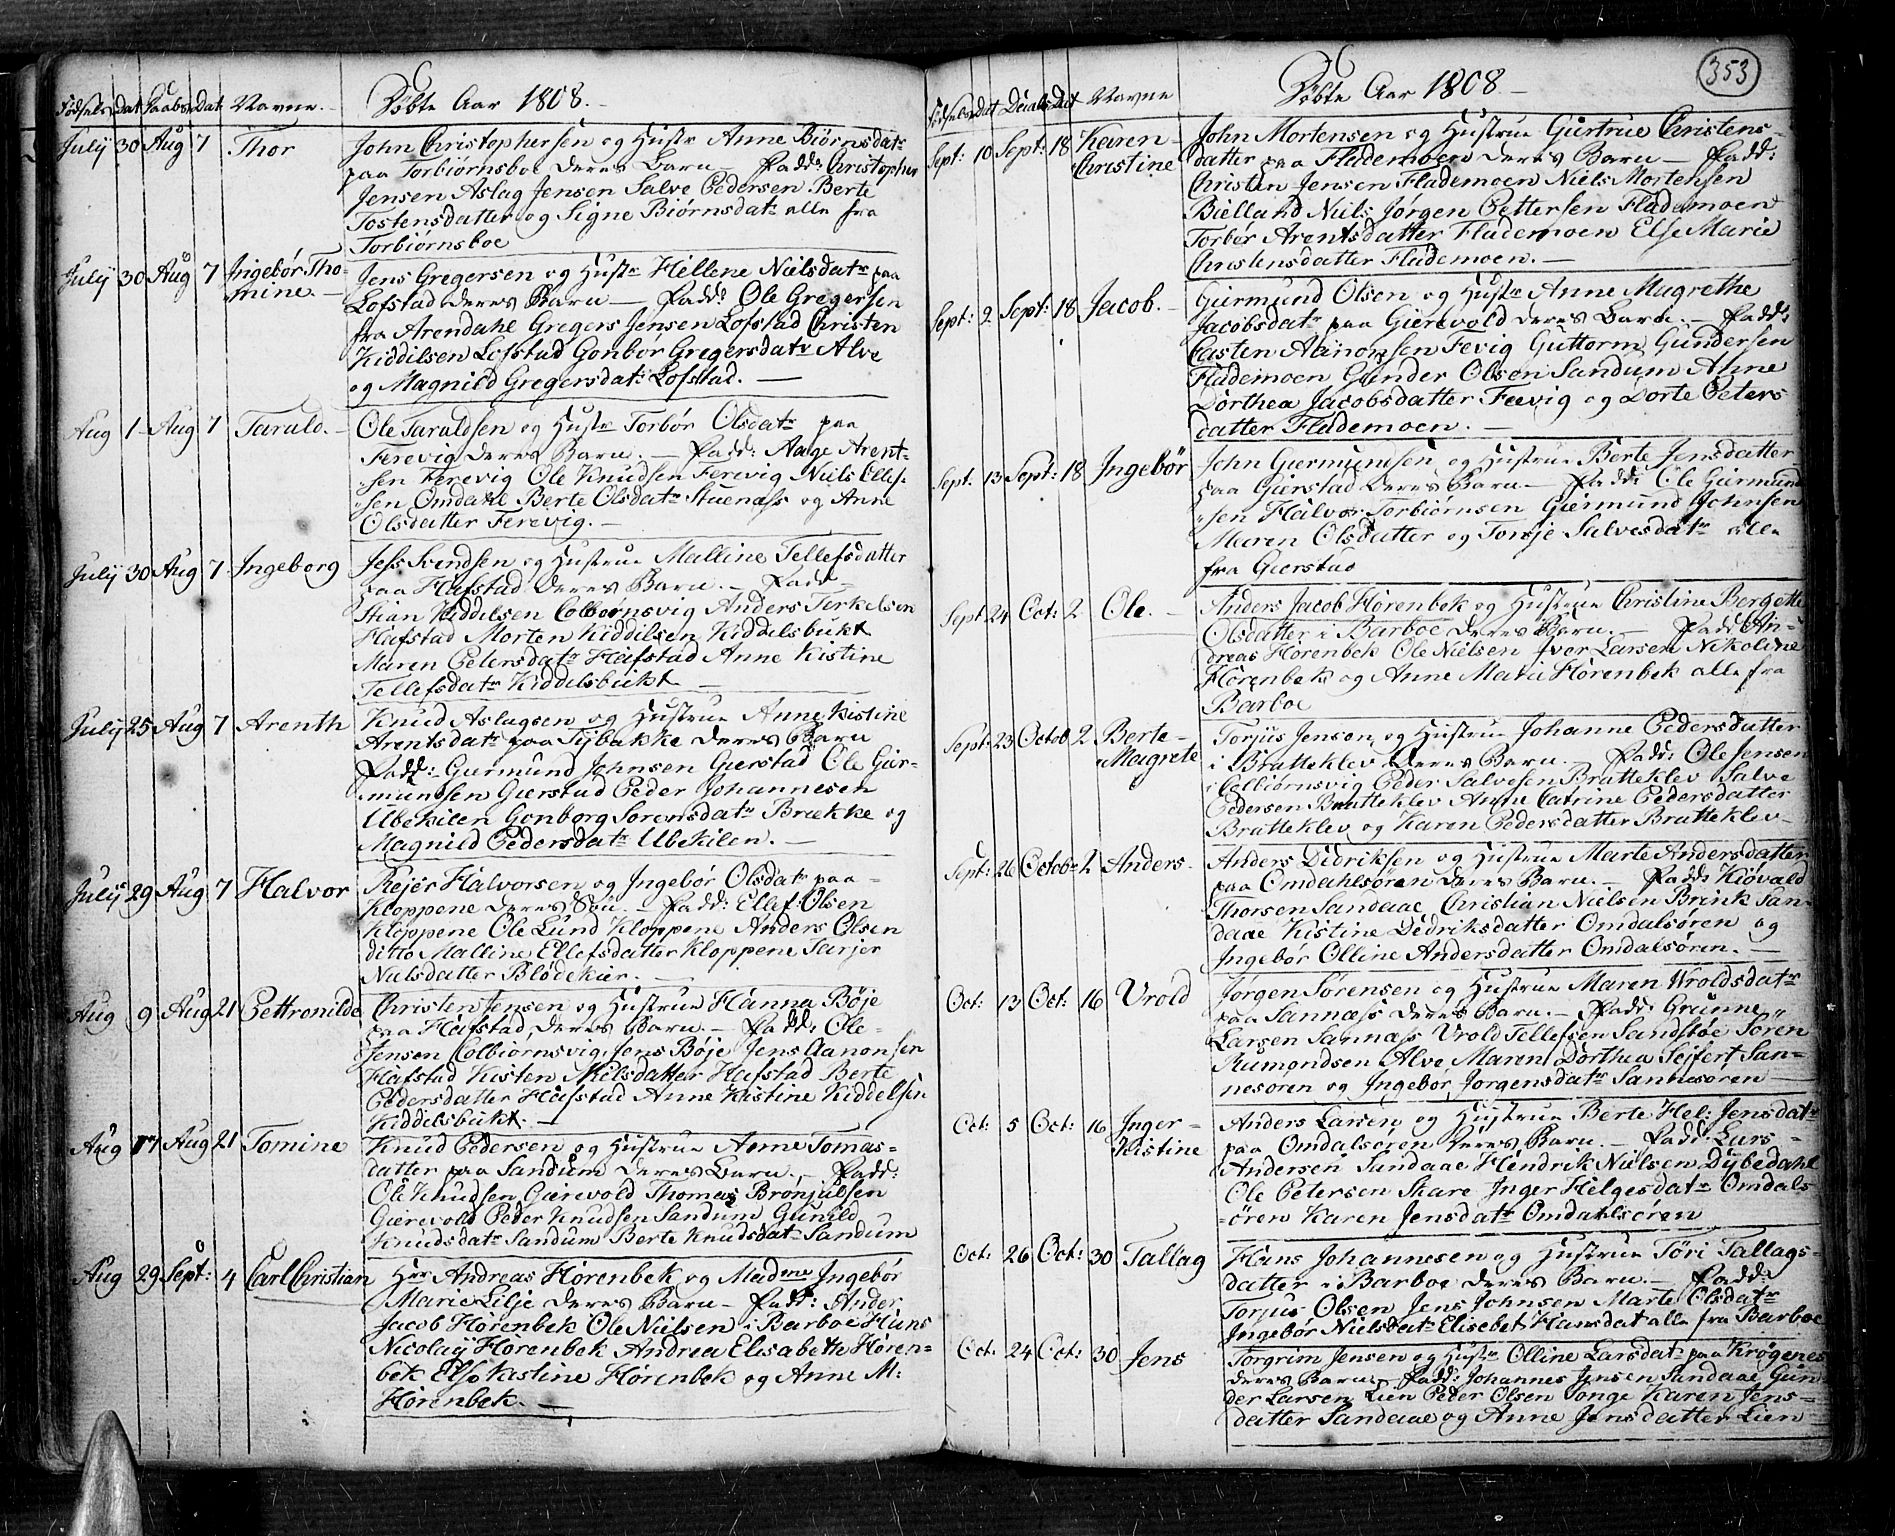 Fødsels dat Daabs dat Navne. Döbte Aar 1808.
July 30 Aug 7 Thor John Christophersen og Hustr Anne Biörnsdatr
paa Torbiörnsboe deres Barn – Fadd: Christopher
Jensen Aslag Jensen Salve Pedersen Berte
Tostensdatter og Signe Biørnsdatr alle fra
Torbiörnsboe
July 30 Aug 7 Ingebör Tho- Jens Gregersen og Hustr Hellene Nielsdatr paa
mine. – Lofstad deres Barn – Fadd: Ole Gregersen
fra Arendahl Gregers Jensen Lofstad Christen
Kiddilsen Lofstad Gonbör Gregersdatr Alve
og Magnild Gregersdatr Lofstad. –
Aug 1 Aug 7 Tarald. – Ole Taraldsen og Hustr Torbör Olsdatr paa
Ferevig deres Barn. – Fadd: Aage Arent-
sen Ferevig Ole Knudsen Ferevig Niels Ellef-
sen Omdahl Berte Olsdatr Stuenæss og Anne
Olsdatter Ferevig. –
July 30 Aug 7 Ingeborg Jess Svendsen og Hustrue Malline Tellefsdatter
paa Hafstad deres Barn. – Fadd
Stian Kiddelsen Colbiornsvig Anders Terkelsen
Hafstad Morten Kiddilsen Kiddelsbukt
Maren Petersdatr Hafstad Anne Kistine
Tellefsdatr Kiddelsbukt –
July 25 Aug 7 Arenth Knud Aslagsen og Hustrue Anne Kistine
Arentsdatr paa Nybakke deres Barn
Fadd: Giermund Johnsen Gierstad Ole Gier-
mundsen Gierstad Peder Johannesen
Ubekilen Gonborg Sorensdatr Brække og
Magnild Pedersdatr Ubekilen. –
July 29 Aug 7 Halvor Rejer Halvorsen og Ingebör Olsdatr paa
Kloppene deres Sön. – Fadd: Ellef Olsen
Kloppene Ole Lund Kloppene Anders Olsen
ditto Malline Ellefsdatter Kloppene Tarjer
Nielsdatter Blödekier. –
Aug 9 Aug 21 Pettronilde Christen Jensen og Hustrue Hanna Böje
paa Hafstad deres Barn. – Fadd: Ole
Jensen Colbiornsvig Jens Böje Jens Aanonsen
Hafstad Kisten Nielsdatter Hafstad Berte
Pedersdatter Hafstad Anne Kistine Kiddelsen
Kiddilsbukt. –
Aug 17 Aug 21 Tomine Knud Pedersen og Hustrue Anne Tomas-
datter paa Sandum deres Barn. – Fadd:
Ole Knudsen Gierevold Thomas Bronjulsen
Gierevold Peder Knudsen Sandum Gunild
Knudsdatr Sandum Berte Knudsdat Sandum
Aug 29 Sept: 4 Carl Christian Hrr Andreas Hörenbek og Madme Ingebör
Marie Lilje deres Barn – Fadd: Ander
Jacob Hörenbek Ole Nielsen i Barboe Hans
Nicolay Hörenbek Andrea Elisabeth Hören-
bek Else Kastine Hörenbek og Anne M:
Hörenbek. –
353
Fødsels dat Daabs Dat Navne Döbte Aar 1808. –
Sept: 10 Sept: 18 Karen John Mortensen og Hustrue Giertrue Christens-
Christine datter paa Flademoen deres Barn – Fadd:
Christen Jensen Flademoen Niels Mortensen
Bielland Niels Jörgen Pettersen Flademoen
Torbör Arentsdatter Flademoen Else Marie
Christensdatter Flademoen. –
Sept: 2 Sept: 18 Jacob. – Giermund Olsen og Hustr Anne Magrethe
Jacobsdatr paa Gierevold deres Barn. – Fadd:
Casten Aanonsen Fevig Guttorm Gundersen
Flademoen Gunder Olsen Sandum Anne
Dorthea Jacobsdatter Feevig og Dorte Peters
datter Flademoen. –
Sept: 13 Sept: 18 Ingebör John Giermundsen og Hustrue Berte Jensdatter
paa Gierstad deres Barn – Fadd: Ole Giermund
sen Halvor Torbiörnsen Giermund Johnsen
Maren Olsdatter og Tonje Salvesdatr alle
fra Gierstad
Sept 24 Oct: 2 Ole. – Anders Jacob Hörenbek og Hustrue Christine Bergette
Olsdatter i Barboe deres Barn. – Fadd An-
dreas Hörenbek Ole Nielsen Iver Larsen Nikoline
Hörenbek og Anne Marie Hörenbek alle fra
Barboe
Sept: 23 Octob 2 Berte Torjus Jensen og Hustrue Johanne Pedersdatter
Magrete i Bratteklev deres Barn. – Fadd: Ole Jensen
i Colbiörnsvig Peder Salvesen Bratteklev Salve
Pedersen Bratteklev Anne Catrine Pedersdatter
Bratteklev og Karen Pedersdatter Bratteklev
Sept: 26 Octob 2 Anders. Anders Didriksen og Hustrue Marte Andersdatter
paa Omdahlsören deres Barn. – Fadd: Kiövald
Thorsen Sandaae Christian Nielsen Brink San-
daae Kistine Didriksdatter Omdalsören og
Ingebör Olline Andersdatter Omdalsören. –
Oct: 13 Oct: 16 Vrold Jörgen Sörensen og Hustrue Maren Vroldsdatr
paa Sannæss deres Barn. – Fadd: Grunne
Larsen Sannæss Vrold Tellefsen Sandstöe Sören
Rumondsen Alve Maren Dorthea Sejfert San-
nesoren og Ingebör Jorgensdatr Sannesören –
Oct: 5 Oct: 16 Inger Anders Larsen og Hustrue Berte Hel: Jensdatr
Kistine paa Omdalsoren deres Barn. – Fadd: Lars
Andersen Sandaae Hendrik Nielsen Dybedahl
Ole Petersen Skare Inger Helgesdatr Omdals-
ören Karen Jensdatr Omdahlsören
Oct: 26 Oct: 30 Tallag Hans Johannesen og Hustrue Töri Tallags-
datter i Barboe deres Barn. – Fadd:
Torjus Olsen Jens Johnsen Marte Olsdatr
Ingebör Nielsdatr Elisebet Hansdat alle fra Barboe
Oct: 24 Oct: 30 Jens Torgrim Jensen og Hustr Olline Larsdatr paa Krögenes
deres Barn. Fadd: Johannes Jensen Sandaae Gun-
der Larsen Lien Peder Olsen Songe Karen Jens-
datter Sandaae og Anne Jensdatter Lien